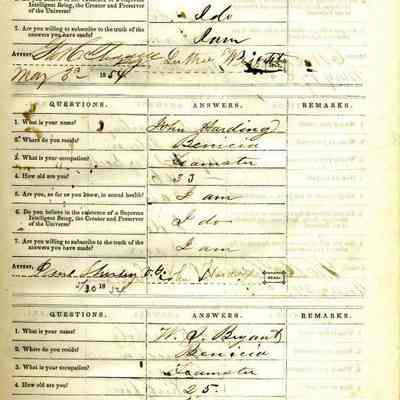 6. Do you believe in the existence of a Supreme Intelligent Being, the Creator and Preserver of the Universe? I do
7. Are you willing to subscribe to the truth of the answers you have made? I am
ATTEST,
May 3d 1854
QUESTIONS. ANSWERS. REMARKS.
1. What is your name? John Harding
2. Where do you reside? Benicia
3. What is your occupation? Teamster
4. How old are you? 33
5. Are you, so far as you know, in sound health? I am
6. Do you believe in the existence of a Supreme
Intelligent Being, the Creator and Preserver
of the Universe? I do
7. Are you willing to subscribe to the truth of the
answers you have made? I am
ATTEST, John Harding SEAL.
5/30 1854
QUESTIONS. ANSWERS. REMARKS.
1. What is your name? W. J. Bryant
2. Where do you reside? Benicia
3. What is your occupation? Teamster
4. How old are you? 25.